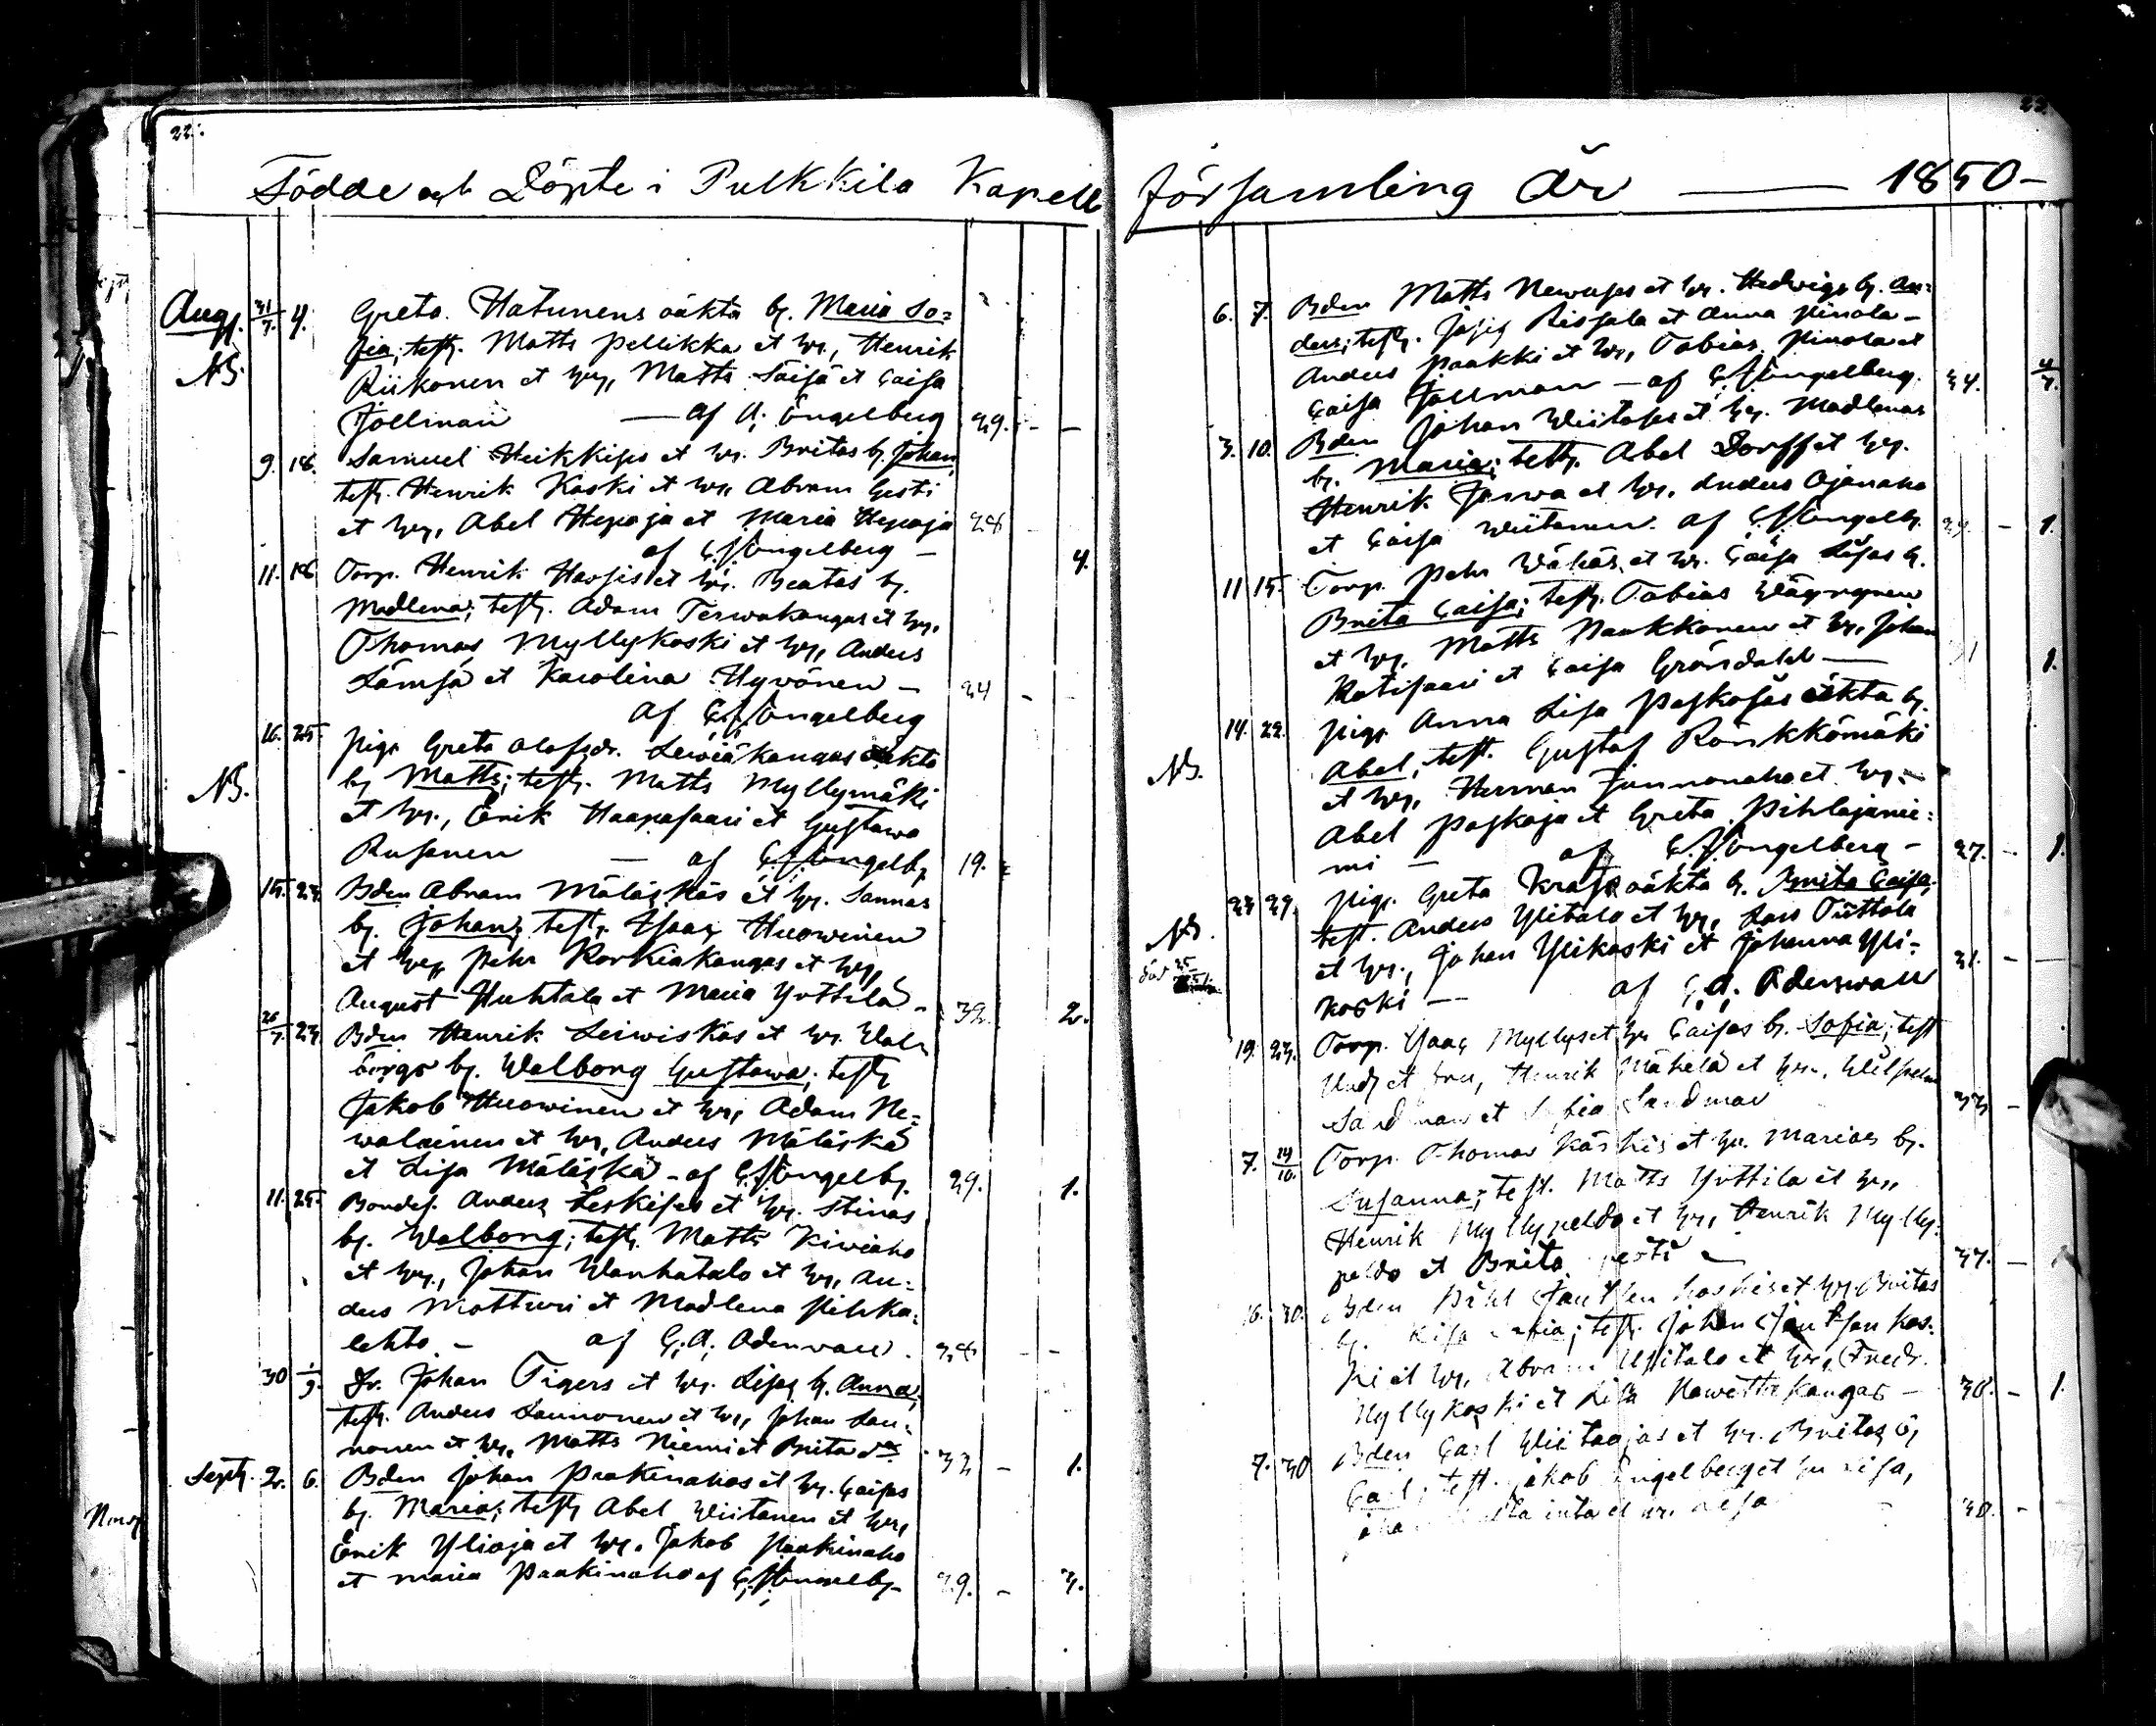 22.
Födde och Döpte i Pulkkila Kapell
Aug. 31/7. 4. Greta Hatunens oäkta b. Maria So=
fia; test. Matts Pellikka et hr., Henrik
NB. Riikonen et hr., Matts Säisä et Caisa
Jollman — af A. Engelberg 29. - -
9. 18. Samuel Heikkises et hr. Britas b. Johan,
test. Henrik Koski et hr., Abram Gesti
et hr., Abel Hepoja et Maria Hepoja 28
af Engelberg — 4.
11. 18 Torp. Henrik et hr. Beatas b.
Madlena; test. Adam Terwakangas et hr.,
Thomas Myllykoski et hr., Anders
Lämsä et Karolina Hyvönen — 24 - -
af Engelberg
16. 25. Pig. Greta Olofsdr. Leiviäkangas oäkta
NB. b. Matts; test. Matts Myllymäki
et hr., Erik Haapasaari et Gustawa
Rusanen — af Engelb. 19.
15. 23. Bden Abram Mäläskäs et hr. Sannas
b. Johan; test. Isaac Huowinen
et hr., Pehr Korkiakangas et hr.,
August Huhtala et Maria Yrttilä - 32. 2.
26/7. 23. Bden Henrik Leiwiskäs et hr. Wal
borgs b. Walborg Gustawa; test.
Jakob Huowinen et hr., Adam Ne=
walainen et hr., Anders Mäläskä
et Lisa Mäläskä - af Engelb. 29. 1.
11. 25. Bondes. Anders Leskises et hr. Stinas
b. Walborg; test. Matts Kiviaho
et hr., Johan Wanhatalo et hr., An=
ders Matturi et Madlena Pihka=
lehto - af G. A. Odenwall. 28 - -
30 1/9. Dr. Johan Tigers et hr. Lisas b. Anna,
test. Anders Lannonen et hr., Johan Lan=
nonen et hr., Matts Niemi et Brita 32 - 1.
Sept. 2. 6. Bden Johan Paakinahos et hr. Caisas
b. Maria; test. Abel Wiitanen et hr.,
Erik Ylioja et hr., Jakob Paakinaho
et Maria Paakinaho af Engelb. 29. - 3.
22
församling År — 1850-
6. 7. Bden Matts et hr. Hedwigs b. An=
ders; test. Rissala et Anna Pinola -
Anders Paakki et hr., Tobias Pinola et
Caisa Jollman — af Engelberg. 34. 4/7.
3. 10. Bden Johan et hr. Madlenas
b. Maria; test. Abel Dorff et hr.
Henrik Jarva et hr., Anders Ojanaho
et Caisa Wiitanen. af Engelb. 29. - 1.
11 15. Torp. Pehr Wähäs et hr. Caisa Lisas b.
Brita Caisa; test. Tobias Wäyrynen
et hr. Matts Naukkonen et hr., Johan
et Caisa Gröndahl — 31 1.
14. 22. Pig. Anna Lisa Paskojas oäkta b.
NB. Abel; test. Gustaf Rönkkömäki
et hr., Herman Junnonaho et hr. -
Abel Paskoja et Greta Pihlajanie=
mi — af Engelberg - 27. - 1.
23 29. Pig. Greta oäkta b. Brita Caisa;
NB. test. Anders Ylitalo et hr., Lars Tiittola
et hr., Johan Ylikoski et Johanna Yli=
koski — af G. A. Odenwall 31. -
19. 23. Torp. Isaac Myllys et hr. Caisas b. Sofia; test
et hr., Henrik Mäkelä et hr., Wilhelm
Sandman et Sofia Sandman 33 -
7. 14/10. Torp. Thomas et hr. Marias b.
Susanna; test. Matts Yrttilä et hr.,
Henrik Myllypeldo et hr., Henrik Mylly=
peldo et Brita 37. -
16. 30. Bden et hr. Britas
b. Lisa Sofia; test. Johan
et hr., Abram Ylitalo et hr., Fredr.
Myllykoski et Lisa kangas - 30. - 1.
7. 30 Bden Carl Wiitaojas et hr. Britas b.
Carl; test. Jakob Engelberg et hr. Lisa,
et hr. Lisa 30. -